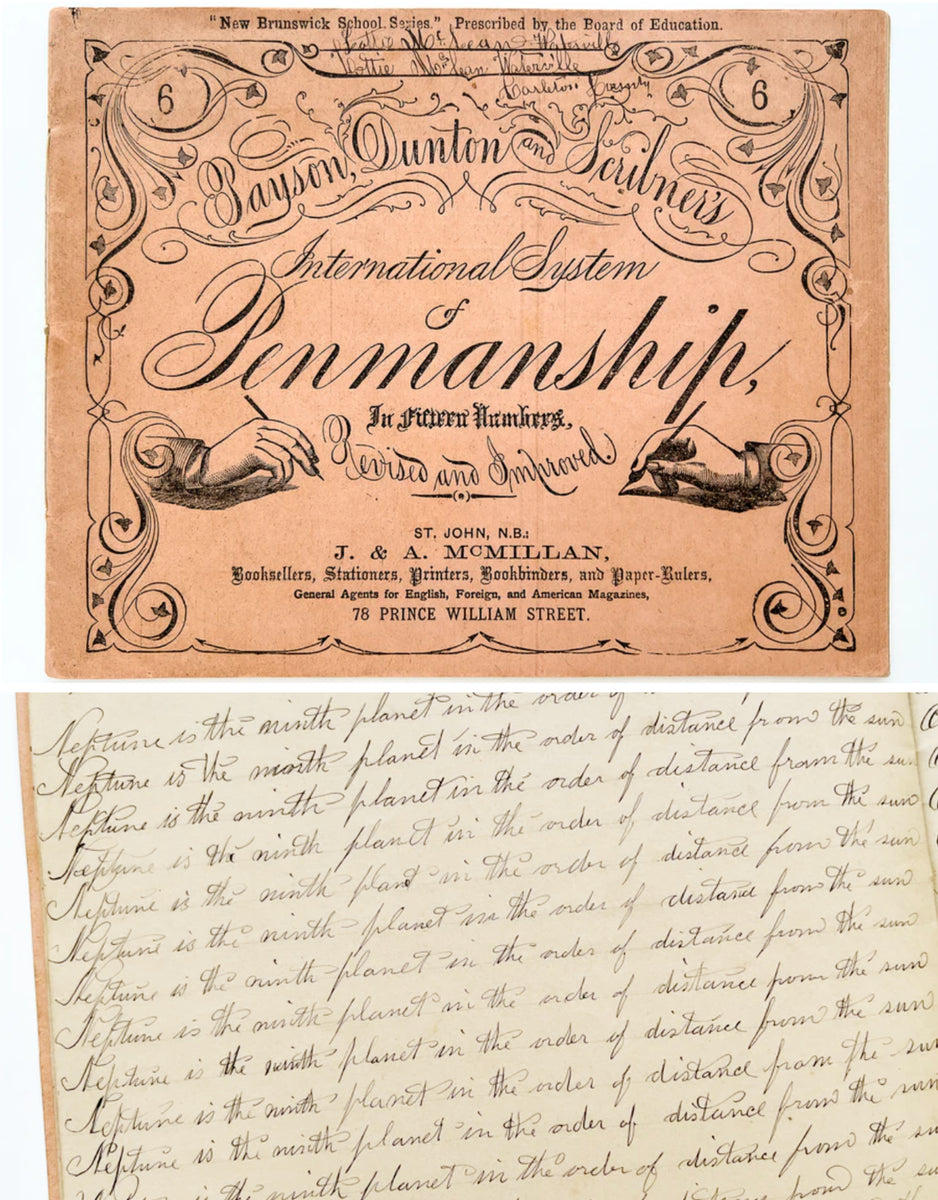 "New Brunswick School Series." Prescribed by the Board of Education.
Lottie McLean Waterville
Lottie McLean Waterville
Carleton County
6
6
Payson, Dunton and Scribner's
International System
of
Penmanship,
In Fifteen Numbers,
Revised and Improved.
ST. JOHN, N.B.:
J. & A. McMILLAN,
Booksellers, Stationers, Printers, Bookbinders, and Paper-Rulers,
General Agents for English, Foreign, and American Magazines,
78 PRINCE WILLIAM STREET.
Neptune is the ninth planet in the order of
Neptune is the ninth planet in the order of distance from the sun
Neptune is the ninth planet in the order of distance from the sun
Neptune is the ninth planet in the order of distance from the sun
Neptune is the ninth planet in the order of distance from the sun
Neptune is the ninth planet in the order of distance from the sun
Neptune is the ninth planet in the order of distance from the sun
Neptune is the ninth planet in the order of distance from the sun
Neptune is the ninth planet in the order of distance from the sun
Neptune is the ninth planet in the order of distance from the sun
Neptune is the ninth planet in the order of distance from the sun
is the ninth planet in the order of distance from the su
from the su